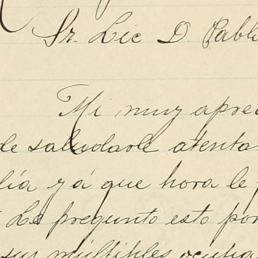 Sr. Lic D Pabl
Mi muy apre
de saludarle atenta
día y á que hora le
Le pregunto esto por
sus múltiples ocupa